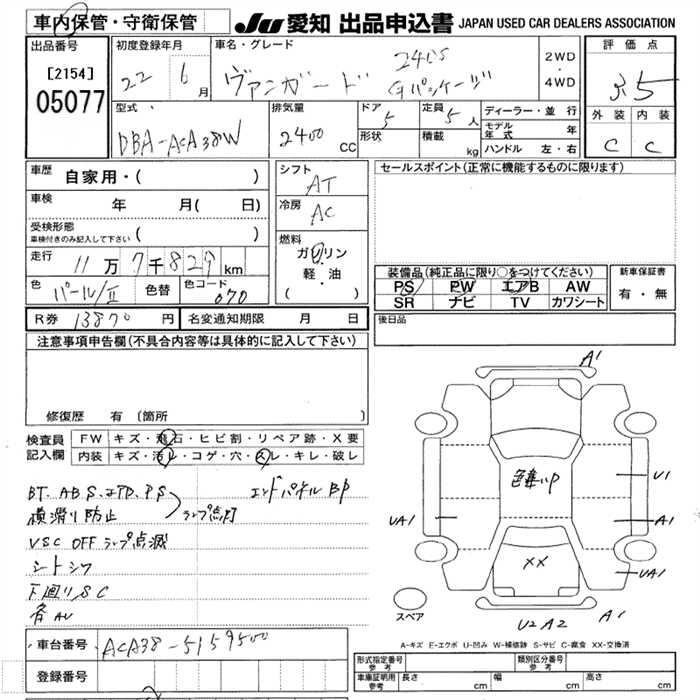 車内保管・守衛保管
JU 愛知 出品申込書 JAPAN USED CAR DEALERS ASSOCIATION
出品番号
[2154]
05077
初度登録年月
22 6月
車名・グレード
240S
ヴァンガード Gパッケージ
2WD
・
4WD
評価点
3.5
外装 内装
C C
型式
DBA-ACA38W
排気量
2400 CC
ドア
5
定員
5人
形状
積載 kg
ディーラー・並行
モデル年式 年
ハンドル 左・右
車歴 自家用・( )
車検 年 月( 日)
受検形態
車検付きのみ記入して下さい ( )
走行 11万7千829km
色 パール/II 色替 色コード 070
R券 13870円 名変通知期限 月 日
シフト
AT
冷房
AC
燃料
ガソリン
軽・油
( )
セールスポイント(正常に機能するものに限ります)
装備品(純正品に限り○をつけてください)
PS PW エアB AW
SR ナビ TV カワシート
新車保証書
有・無
後日品
注意事項申告欄(不具合内容等は具体的に記入して下さい)
修復歴 有(箇所
検査員記入欄
FW キズ・飛石・ヒビ割・リペア跡・X要
内装 キズ・汚レ・コゲ・穴・スレ・キレ・破レ
BT、AB、S、
横滑り防止 ランプ点灯
エンドパネルBP
VSC OFF ランプ点滅
シトシワ
下廻りSC
各AU
A1
色違いP
U1
A1
UA1
UA1
XX
A1
U2 A2
スペア
A-キズ E-エクボ U-凹み W-補修跡 S-サビ C-腐食 XX-交換済
車台番号 ACA38-5159500
登録番号
形式指定番号
参考
類別区分番号
参考
車庫証明用
参考
長さ cm 幅 cm 高さ cm